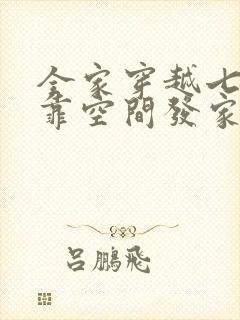 全家穿越七
靠空間發家
呂鵬飛